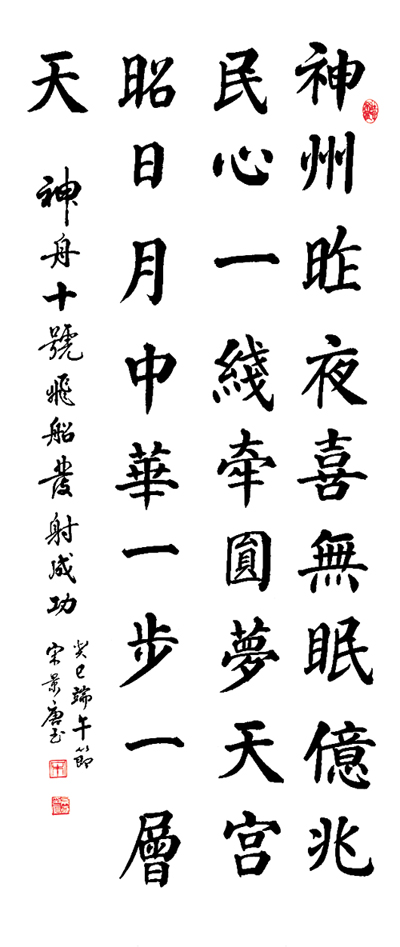 神州昨夜喜無眠億兆
民心一綫牽圓夢天宮
昭日月中華一步一層
天
神舟十號飛船發射成功
癸巳端午節
宋景唐書